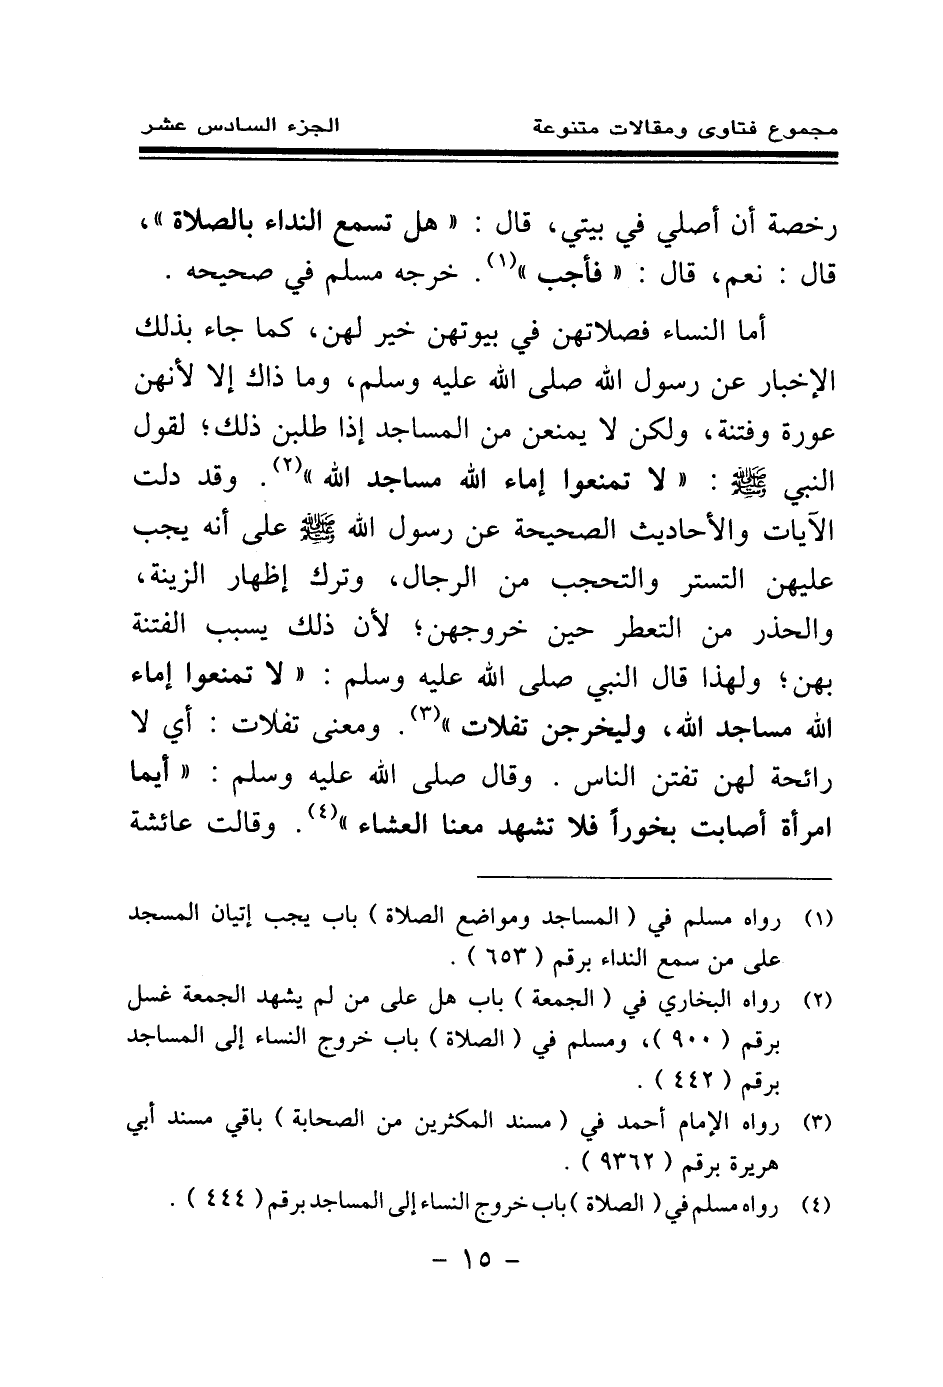 مجموع فتاوى ومقالات متنوعة الجزء السادس عشر
رخصة أن أصلي في بيتي، قال : « هل تسمع النداء بالصلاة »،
قال : نعم، قال : « فأجب »(١). خرجه مسلم في صحيحه .
أما النساء فصلاتهن في بيوتهن خير لهن، كما جاء بذلك
الإخبار عن رسول الله صلى الله عليه وسلم، وما ذاك إلا لأنهن
عورة وفتنة، ولكن لا يمنعن من المساجد إذا طلبن ذلك؛ لقول
النبي ﷺ : « لا تمنعوا إماء الله مساجد الله »(٢). وقد دلت
الآيات والأحاديث الصحيحة عن رسول الله ﷺ على أنه يجب
عليهن التستر والتحجب من الرجال، وترك إظهار الزينة،
والحذر من التعطر حين خروجهن؛ لأن ذلك يسبب الفتنة
بهن؛ ولهذا قال النبي صلى الله عليه وسلم : « لا تمنعوا إماء
الله مساجد الله، وليخرجن تفلات »(٣). ومعنى تفلات : أي لا
رائحة لهن تفتن الناس . وقال صلى الله عليه وسلم : « أيما
امرأة أصابت بخوراً فلا تشهد معنا العشاء »(٤). وقالت عائشة
(١) رواه مسلم في ( المساجد ومواضع الصلاة ) باب يجب إتيان المسجد
على من سمع النداء برقم ( ٦٥٣ ) .
(٢) رواه البخاري في ( الجمعة ) باب هل على من لم يشهد الجمعة غسل
برقم ( ٩٠٠ )، ومسلم في ( الصلاة ) باب خروج النساء إلى المساجد
برقم ( ٤٤٢ ) .
(٣) رواه الإمام أحمد في ( مسند المكثرين من الصحابة ) باقي مسند أبي
هريرة برقم ( ٩٣٦٢ ) .
(٤) رواه مسلم في ( الصلاة ) باب خروج النساء إلى المساجد برقم ( ٤٤٤ ) .
- ١٥ -